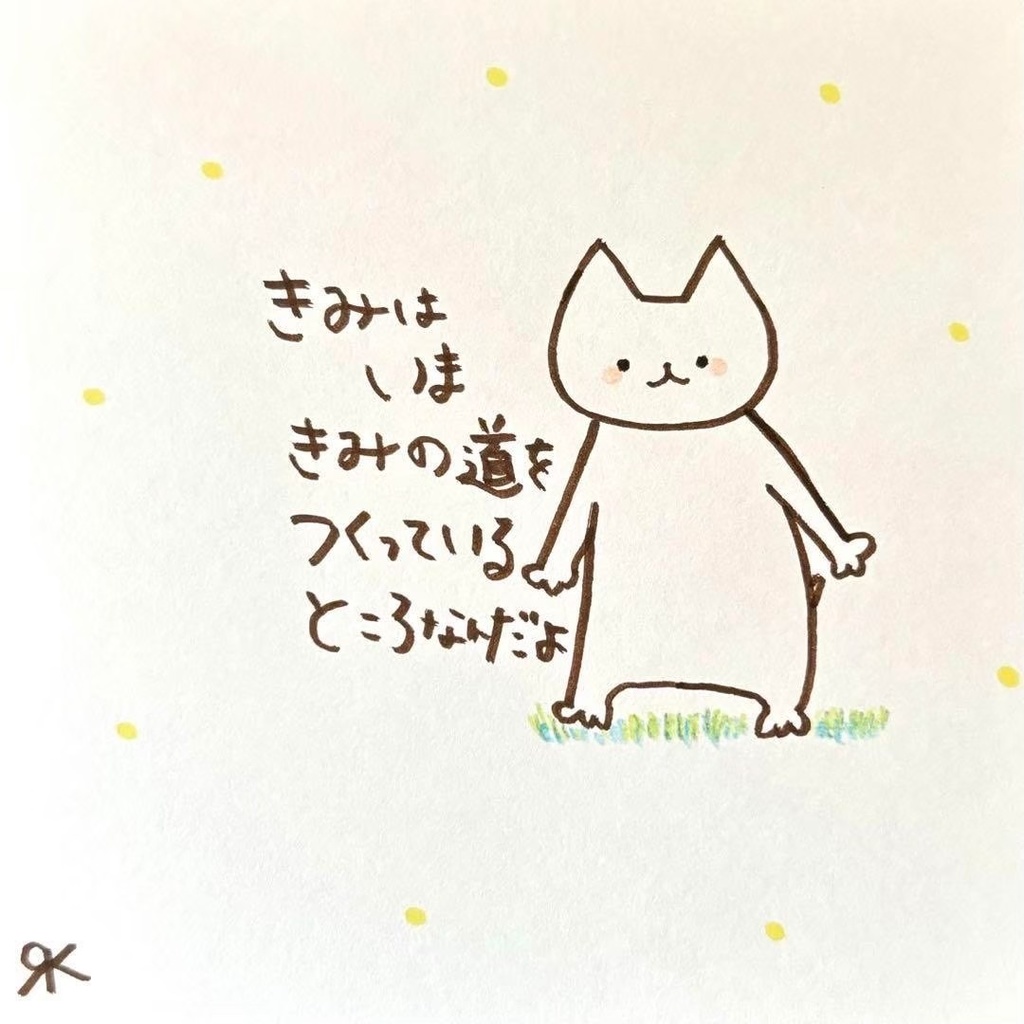 きみは
いま
きみの道を
つくっている
ところなんだよ